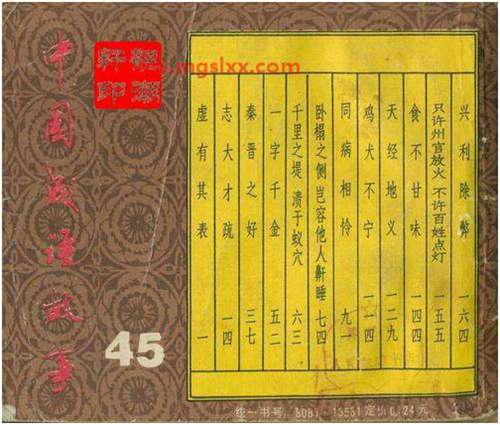 中国成语故事
45
虚有其表 一
志大才疏 一四
秦晋之好 三七
一字千金 五二
千里之堤 溃于蚁穴 六三
卧榻之侧岂容他人鼾睡 七四
同病相怜 九一
鸡犬不宁 一一四
天经地义 一二九
食不甘味 一四四
只许州官放火 不许百姓点灯 一五五
兴利除弊 一六四
统一书号：8081·13551 定价0.24元
mgslxx.com